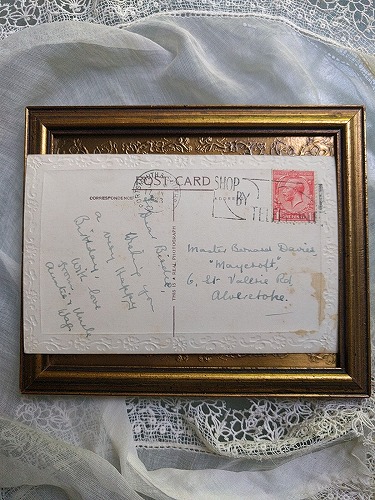 POST-CARD
CORRESPONDENCE
ADDRESS
SHOP
BY
TEL
Dear Birdie,
Wishing you
a very Happy
Birthday,
With love
from
Auntie & Uncle
Master Bernard Davies
"Maycroft",
6, St Valerie Rd,
Alverstoke.